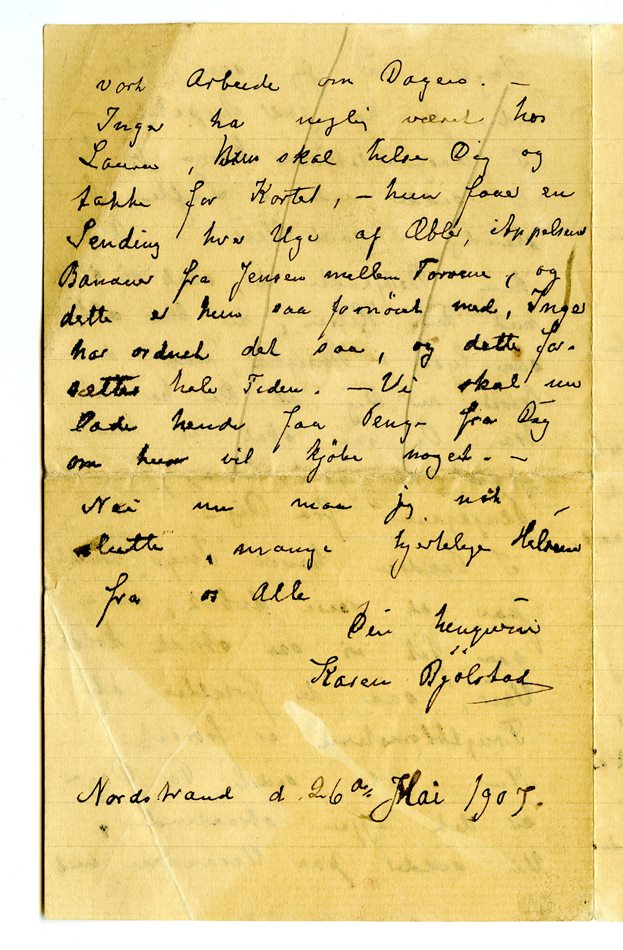 vort Arbeide om Dagen. —
Inger ha nylig været hos
Laura, Hun skal helse Dig og
takke for Kortet, — hun faar en
Sending hver Uge af Æbler, Appelsiner
Bananer fra Jensen mellem Torvene, og
dette er hun saa fornöiet med, Inger
har ordnet det saa, og dette for-
sætter hele Tiden. — Vi skal nu
lade hende faa Penge fra Dig
om hun vil kjöbe noget. —
Nei nu maa jeg nok
slutte, mange hjertelige Hilsener
fra os Alle
Din hengivne
Karen Bjölstad
Nordstrand d. 26 Mai 1907.